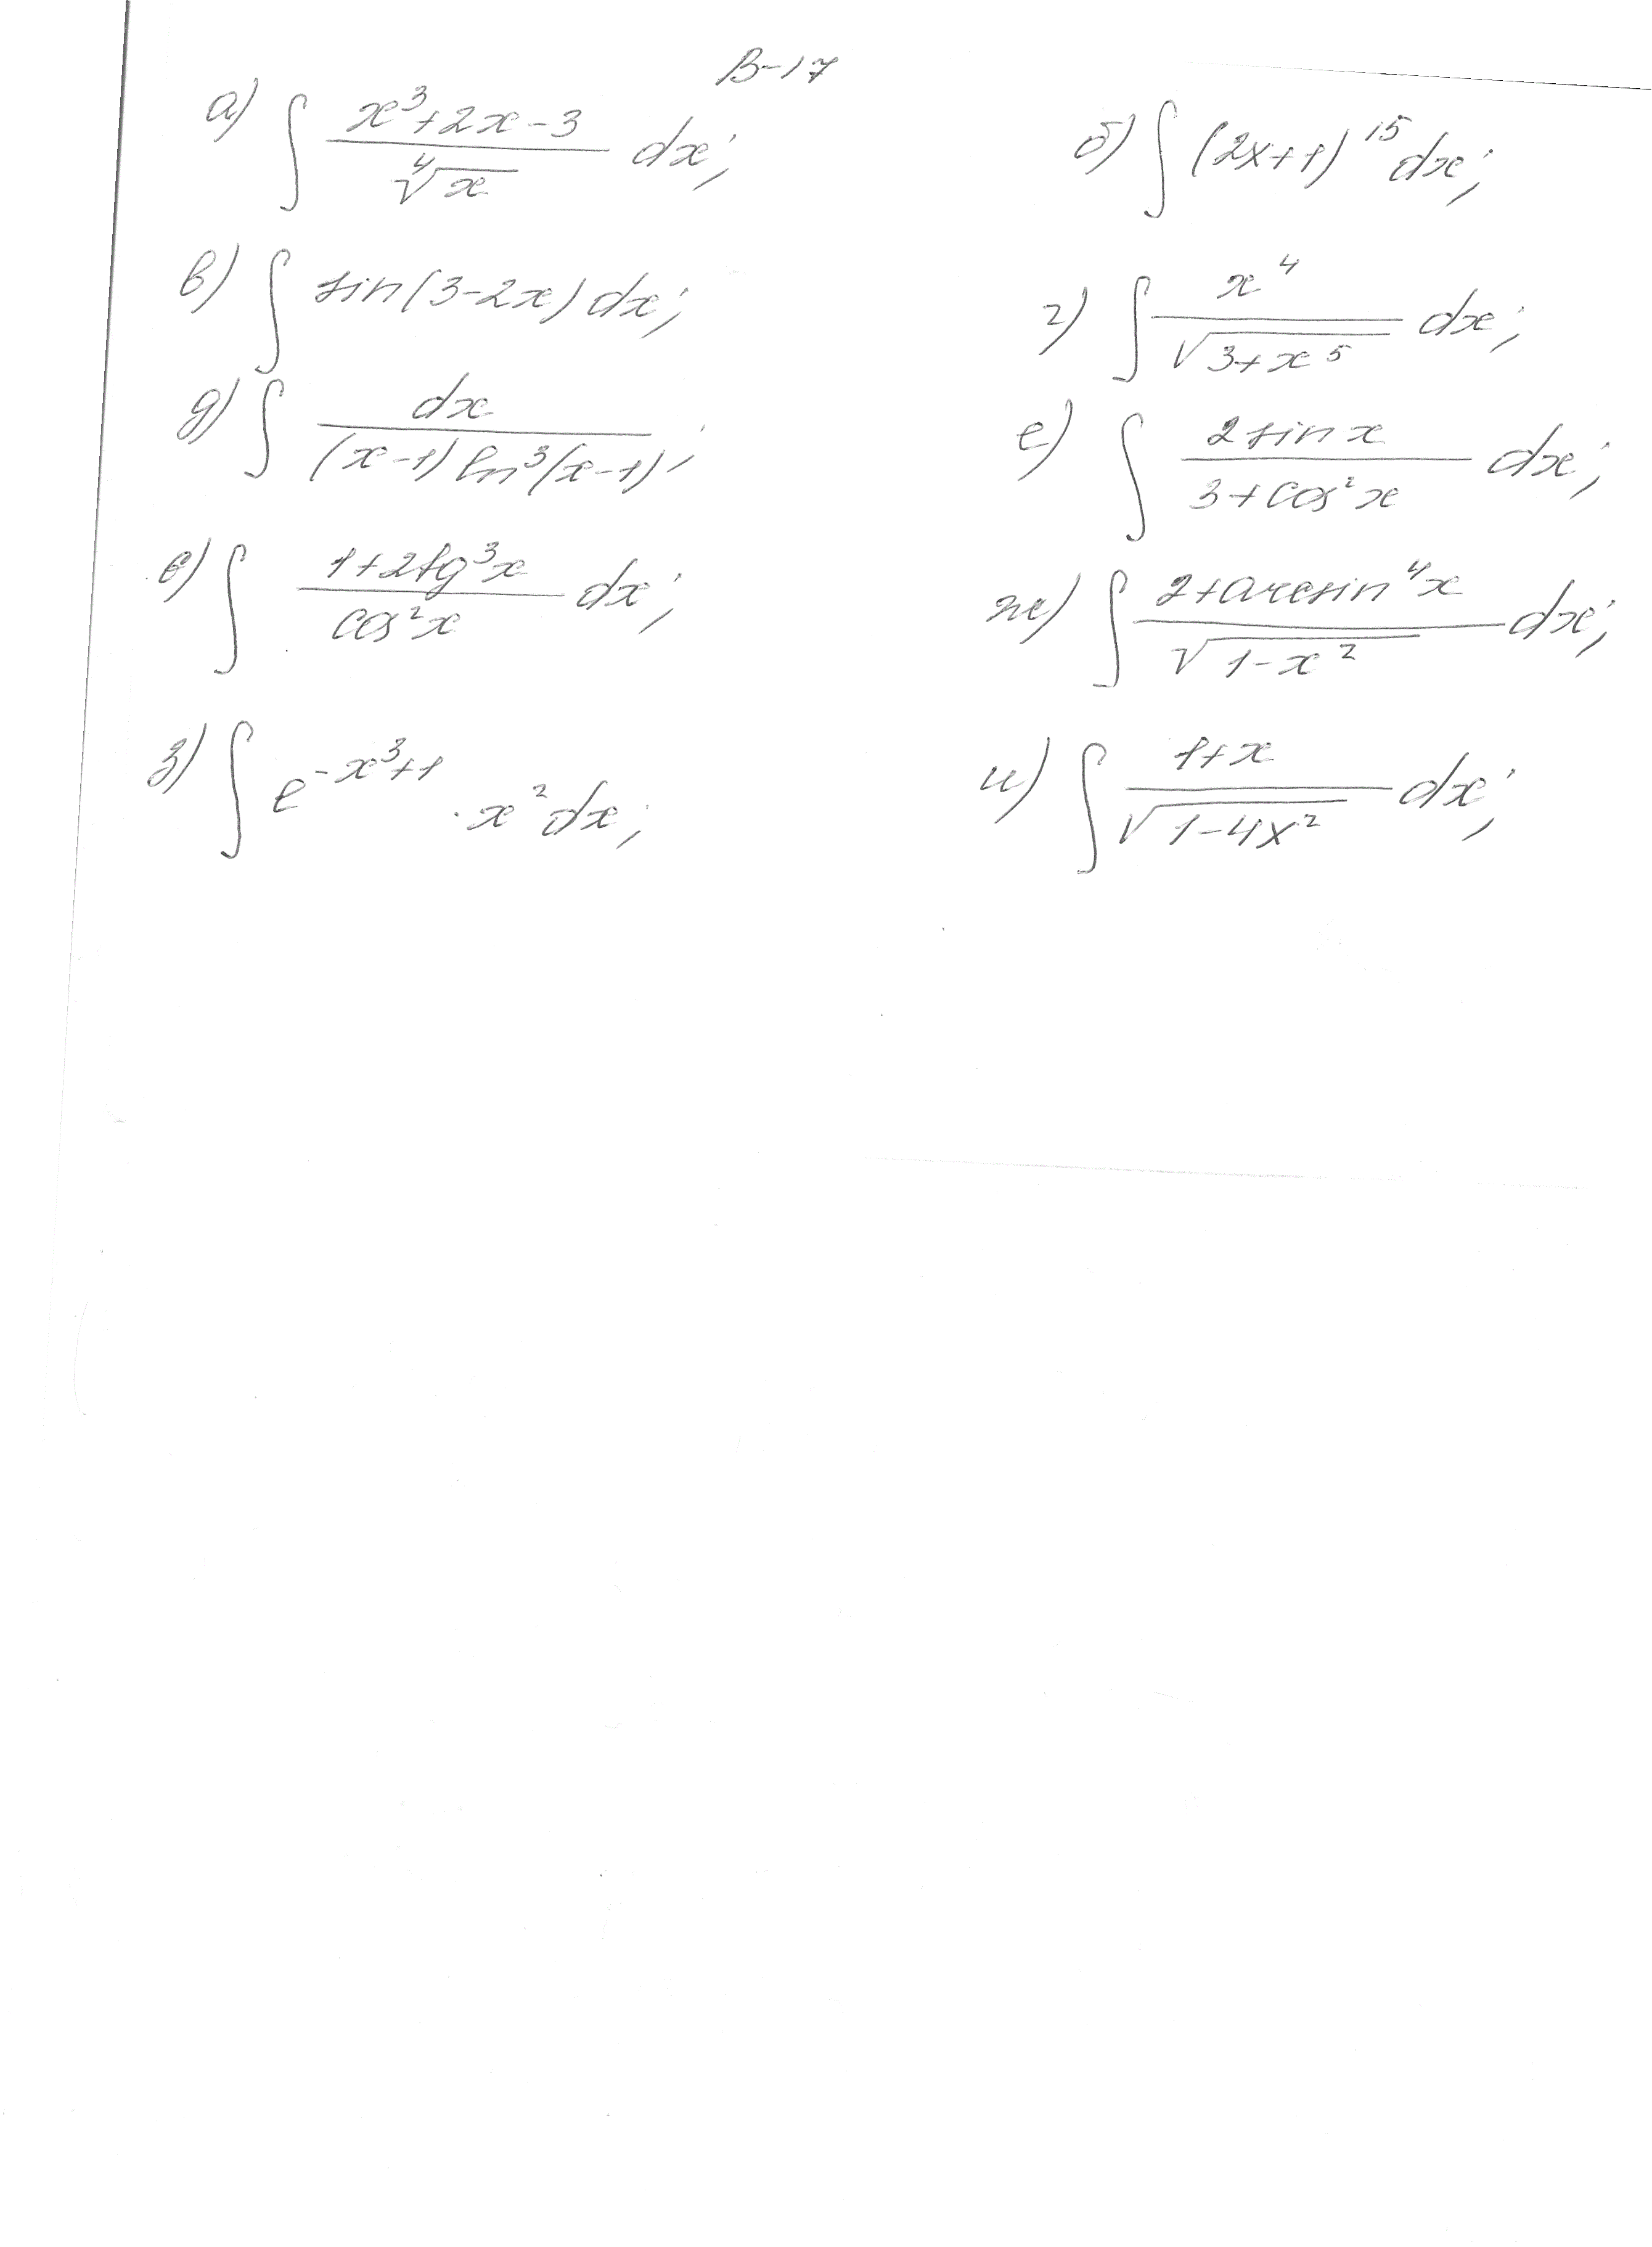 В-17
а) ∫ (x³+2x-3)/(∜x) dx;
б) ∫ (2x+1)¹⁵ dx;
в) ∫ sin(3-2x) dx;
г) ∫ x⁴/√(3+x⁵) dx;
д) ∫ dx/((x-1) ln³(x-1));
е) ∫ (2 sin x)/(3+cos²x) dx;
ё) ∫ (1+2tg³x)/(cos²x) dx;
ж) ∫ (2+arcsin⁴x)/√(1-x²) dx;
з) ∫ e^(-x³+1) · x² dx;
и) ∫ (1+x)/√(1-4x²) dx;